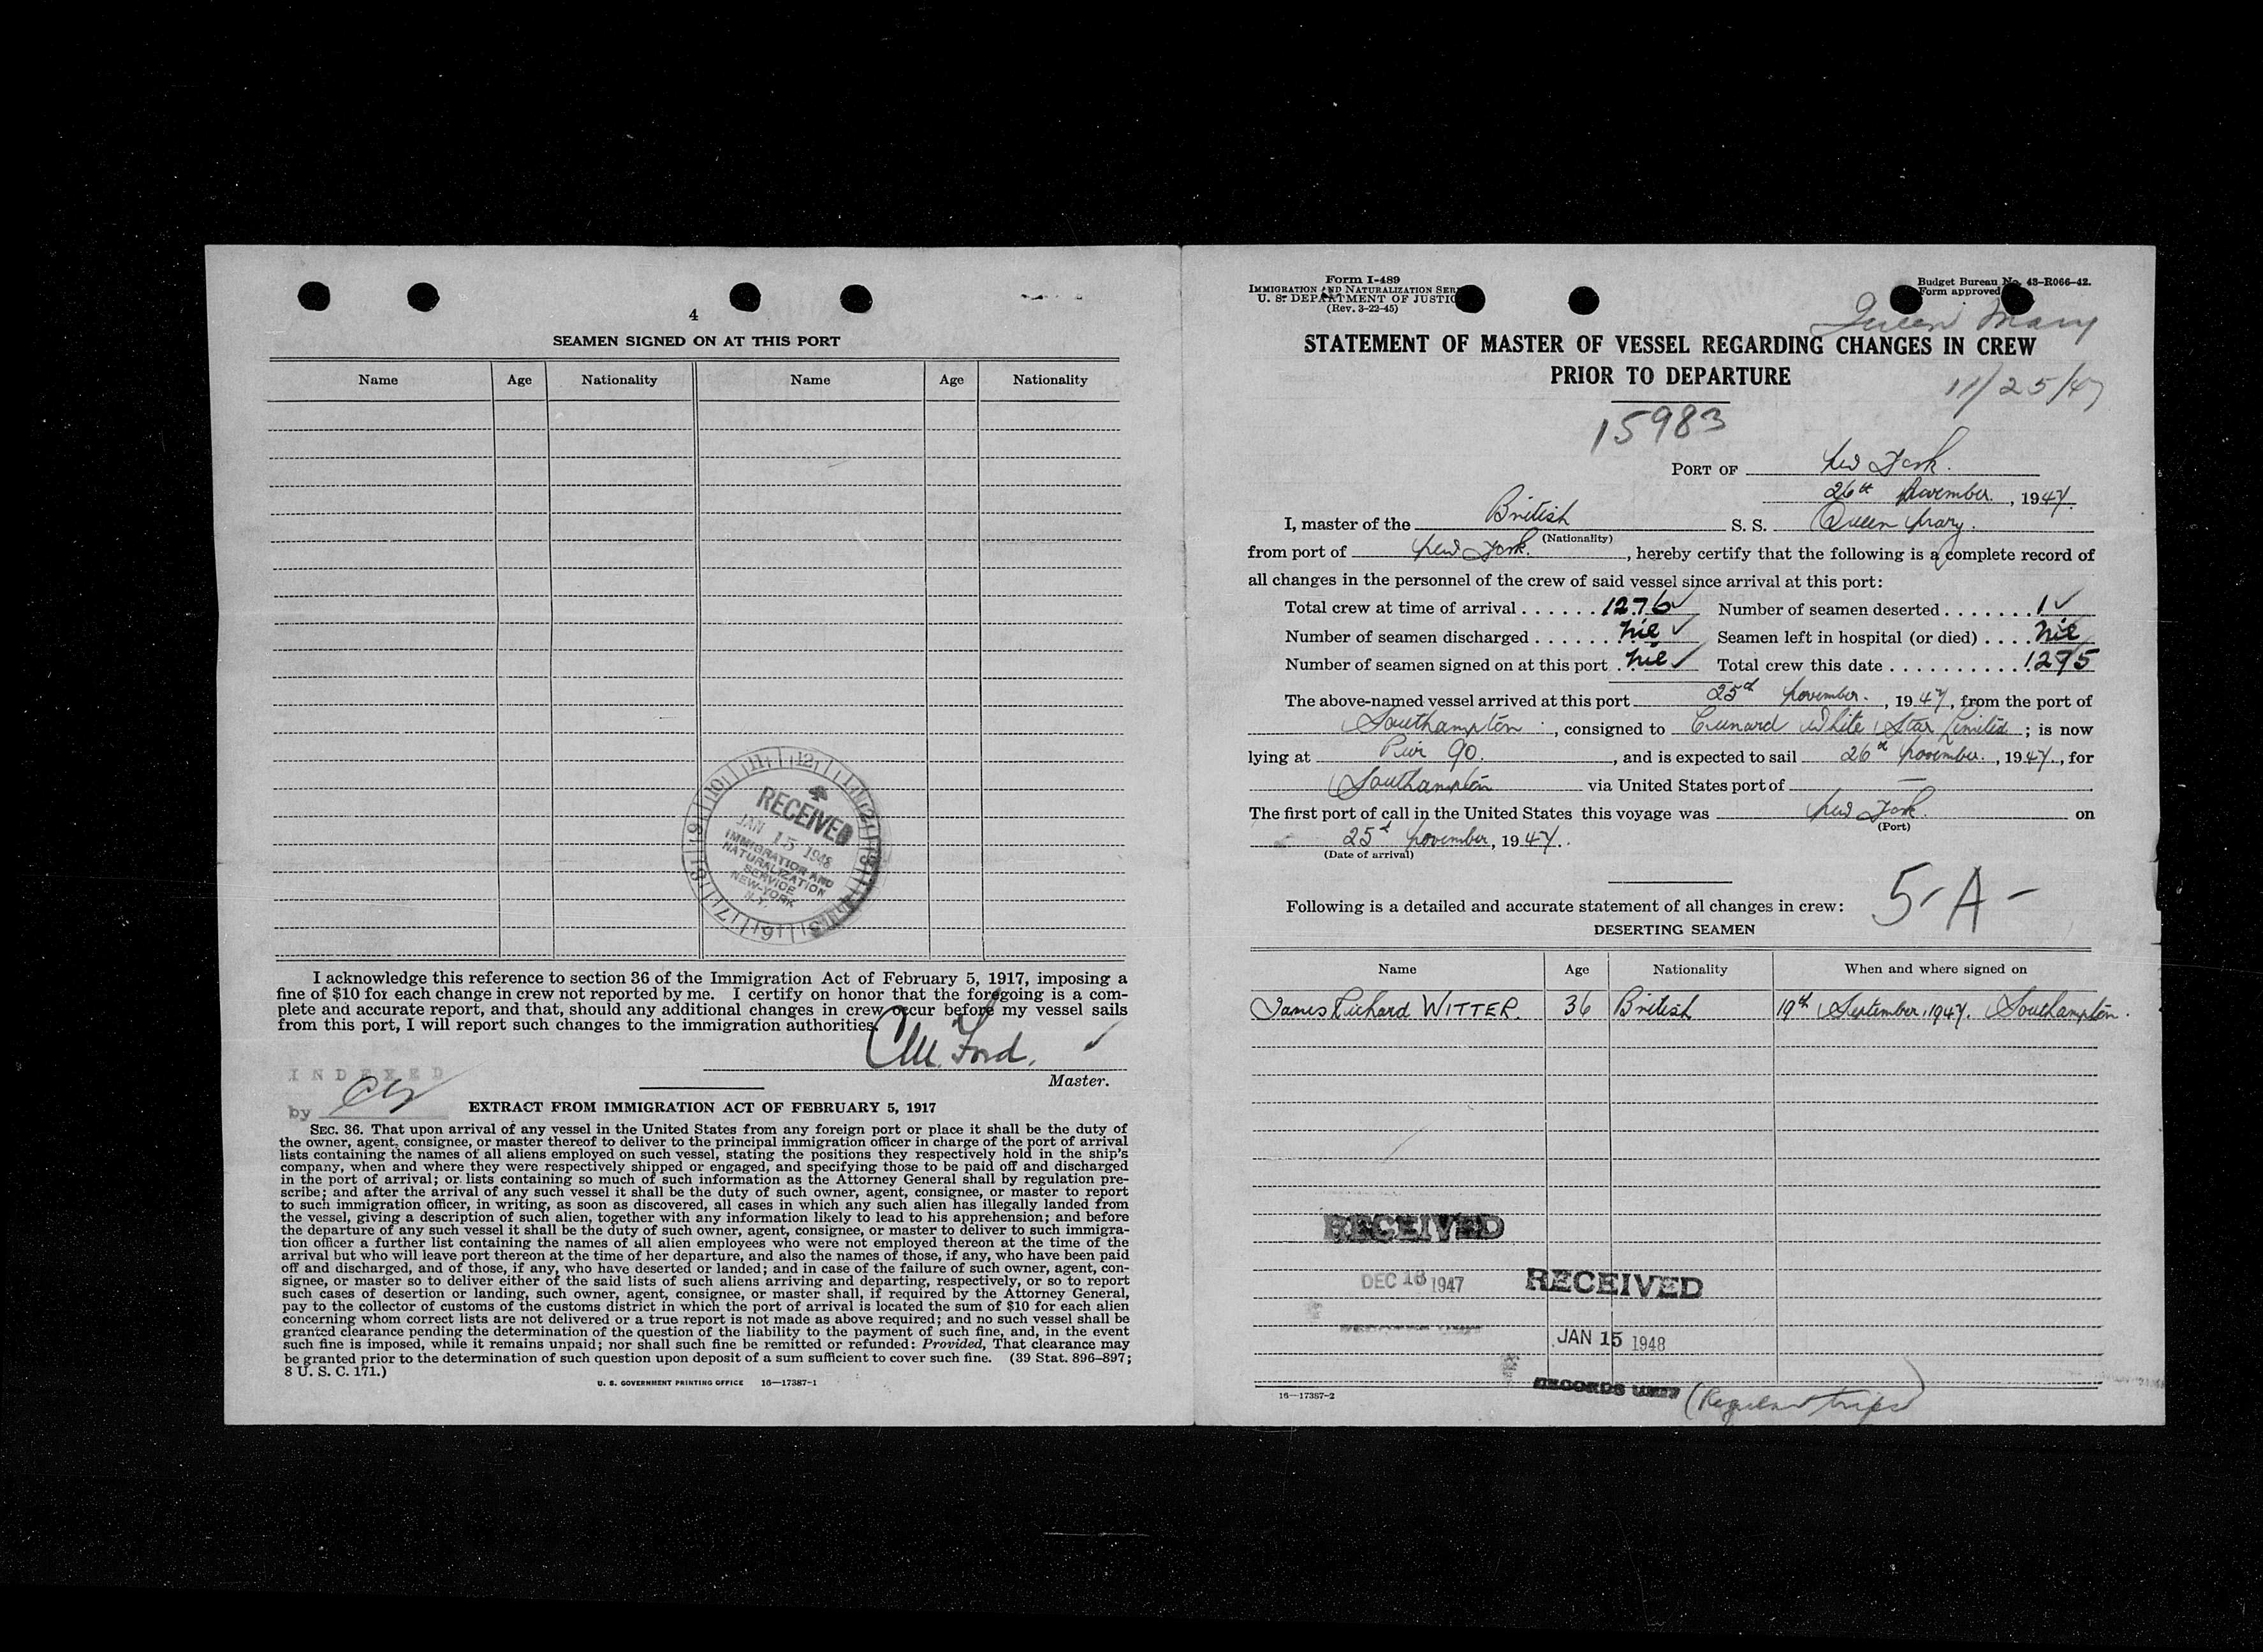 4
SEAMEN SIGNED ON AT THIS PORT
Name Age Nationality Name Age Nationality
RECEIVED
JAN 15 1948
IMMIGRATION AND
NATURALIZATION
SERVICE
NEW-YORK
N.Y.
I acknowledge this reference to section 36 of the Immigration Act of February 5, 1917, imposing a
fine of $10 for each change in crew not reported by me. I certify on honor that the foregoing is a com-
plete and accurate report, and that, should any additional changes in crew occur before my vessel sails
from this port, I will report such changes to the immigration authorities.
Ford.
Master.
INDEXED
by
EXTRACT FROM IMMIGRATION ACT OF FEBRUARY 5, 1917
SEC. 36. That upon arrival of any vessel in the United States from any foreign port or place it shall be the duty of
the owner, agent, consignee, or master thereof to deliver to the principal immigration officer in charge of the port of arrival
lists containing the names of all aliens employed on such vessel, stating the positions they respectively hold in the ship's
company, when and where they were respectively shipped or engaged, and specifying those to be paid off and discharged
in the port of arrival; or lists containing so much of such information as the Attorney General shall by regulation pre-
scribe; and after the arrival of any such vessel it shall be the duty of such owner, agent, consignee, or master to report
to such immigration officer, in writing, as soon as discovered, all cases in which any such alien has illegally landed from
the vessel, giving a description of such alien, together with any information likely to lead to his apprehension; and before
the departure of any such vessel it shall be the duty of such owner, agent, consignee, or master to deliver to such immigra-
tion officer a further list containing the names of all alien employees who were not employed thereon at the time of the
arrival but who will leave port thereon at the time of her departure, and also the names of those, if any, who have been paid
off and discharged, and of those, if any, who have deserted or landed; and in case of the failure of such owner, agent, con-
signee, or master so to deliver either of the said lists of such aliens arriving and departing, respectively, or so to report
such cases of desertion or landing, such owner, agent, consignee, or master shall, if required by the Attorney General,
pay to the collector of customs of the customs district in which the port of arrival is located the sum of $10 for each alien
concerning whom correct lists are not delivered or a true report is not made as above required; and no such vessel shall be
granted clearance pending the determination of the question of the liability to the payment of such fine, and, in the event
such fine is imposed, while it remains unpaid; nor shall such fine be remitted or refunded: Provided, That clearance may
be granted prior to the determination of such question upon deposit of a sum sufficient to cover such fine. (39 Stat. 896–897;
8 U. S. C. 171.)
U. S. GOVERNMENT PRINTING OFFICE 16—17387-1
Form I-489
IMMIGRATION AND NATURALIZATION SER
U. S. DEPARTMENT OF JUSTIC
(Rev. 3-22-45)
Budget Bureau No. 43-R066-42.
Form approved
Queen Mary
STATEMENT OF MASTER OF VESSEL REGARDING CHANGES IN CREW
PRIOR TO DEPARTURE
11/25/47
15983
PORT OF New York.
26th November, 1947.
I, master of the British S. S. Queen Mary.
(Nationality)
from port of New York., hereby certify that the following is a complete record of
all changes in the personnel of the crew of said vessel since arrival at this port:
Total crew at time of arrival 1276 Number of seamen deserted 1
Number of seamen discharged Nil Seamen left in hospital (or died) Nil
Number of seamen signed on at this port Nil Total crew this date 1275
The above-named vessel arrived at this port 25th November., 1947, from the port of
Southampton, consigned to Cunard White Star Limited; is now
lying at Pier 90., and is expected to sail 26th November., 1947., for
Southampton via United States port of —
The first port of call in the United States this voyage was New York. on
(Port)
25th November, 1947.
(Date of arrival)
5-A-
Following is a detailed and accurate statement of all changes in crew:
DESERTING SEAMEN
Name Age Nationality When and where signed on
James Richard WITTER. 36 British 19th September, 1947. Southampton.
RECEIVED
DEC 18 1947
RECEIVED
JAN 15 1948
RECORDS UNIT
(Regular trips)
16—17387-2